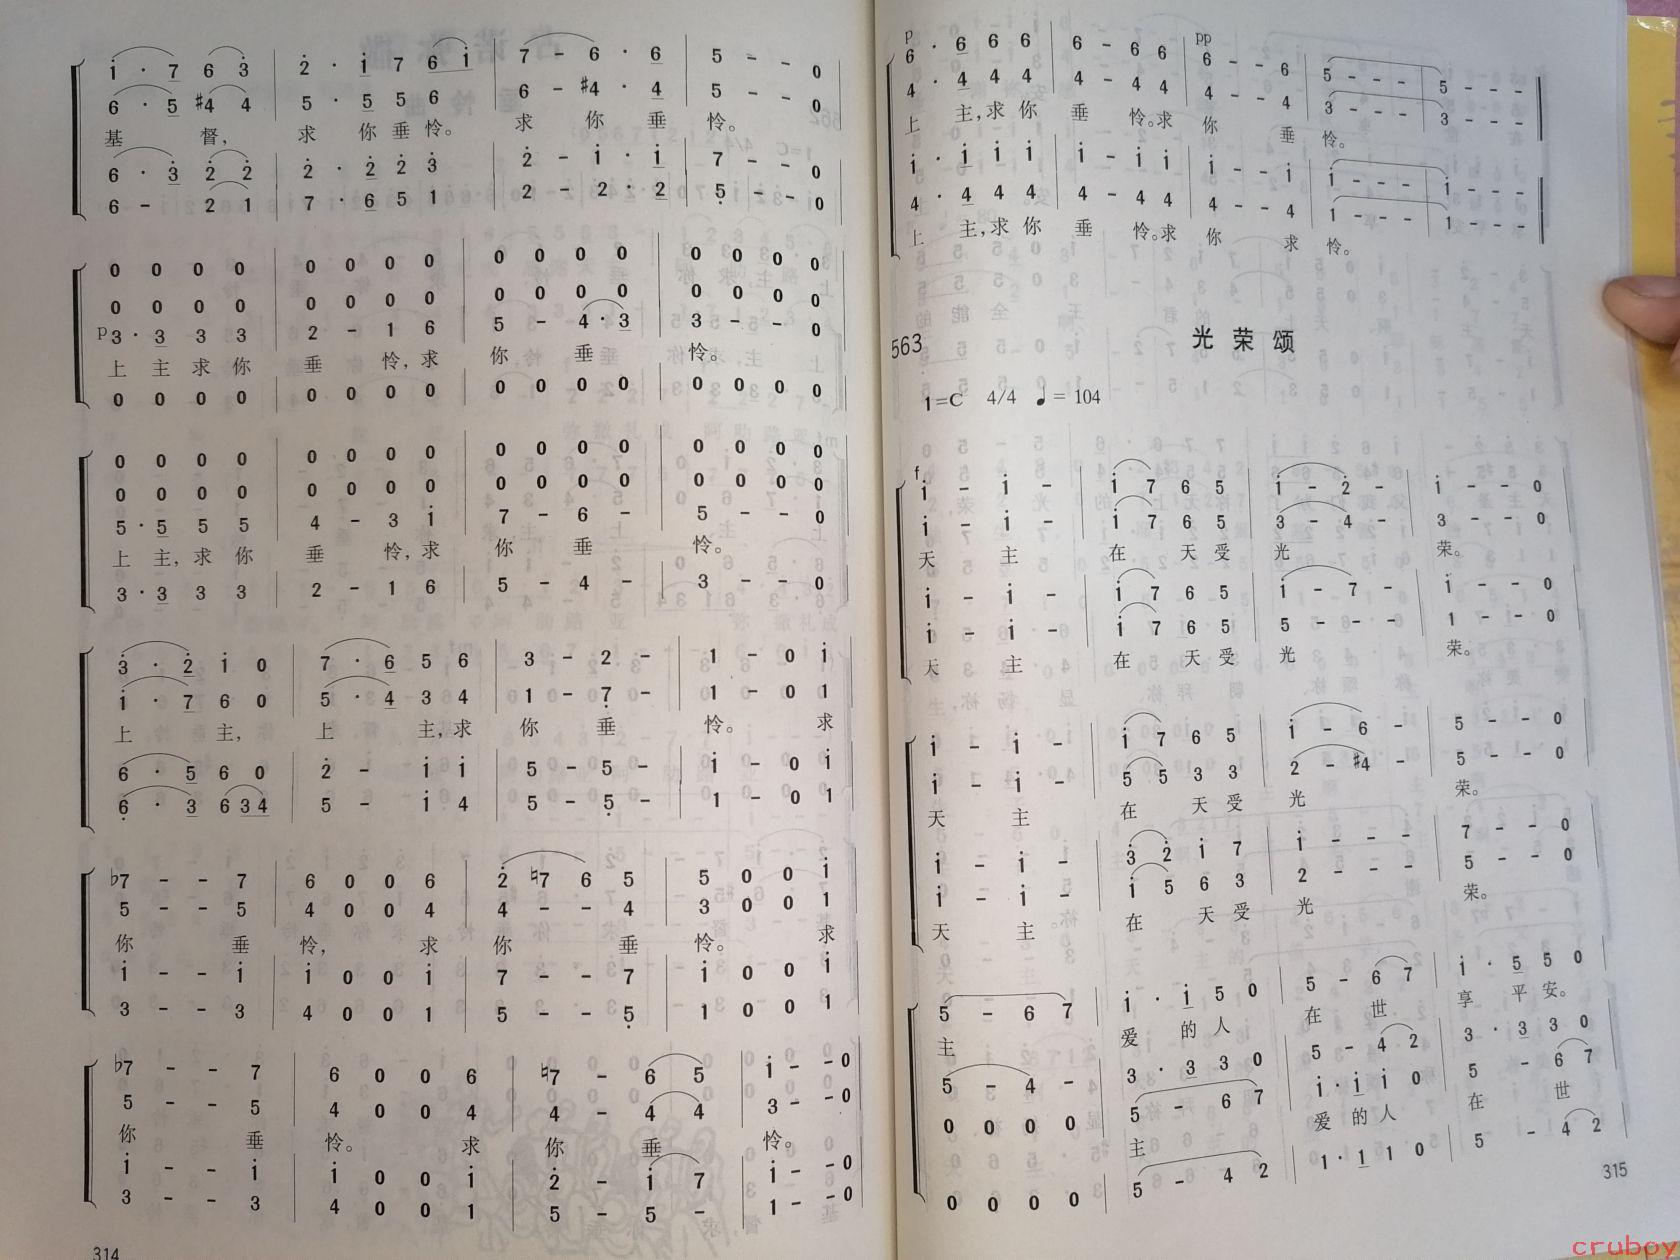 i · 7 6 3 2 · i 7 6 i 7 - 6 · 6 5 - - 0
6 · 5 #4 4 5 · 5 5 6 6 - #4 · 4 5 - - 0
基 督， 求 你 垂 怜。 求 你 垂 怜。
6 · 3 2 2 2 · 2 2 3 2 - i · i 7 - - 0
6 - 2 1 7 · 6 5 1 2 - 2 · 2 5 - - 0
0 0 0 0 0 0 0 0 0 0 0 0 0 0 0 0
0 0 0 0 0 0 0 0 0 0 0 0 0 0 0 0
p 3 · 3 3 3 2 - 1 6 5 - 4 · 3 3 - - 0
上 主 求 你 垂 怜，求 你 垂 怜。
0 0 0 0 0 0 0 0 0 0 0 0 0 0 0 0
0 0 0 0 0 0 0 0 0 0 0 0 0 0 0 0
0 0 0 0 0 0 0 0 0 0 0 0 0 0 0 0
5 · 5 5 5 4 - 3 i 7 - 6 - 5 - - 0
上 主，求 你 垂 怜，求 你 垂 怜。
3 · 3 3 3 2 - 1 6 5 - 4 - 3 - - 0
3 · 2 i 0 7 · 6 5 6 3 - 2 - 1 - 0 i
i · 7 6 0 5 · 4 3 4 1 - 7 - 1 - 0 1
上 主， 上 主，求 你 垂 怜。 求
6 · 5 6 0 2 - i i 5 - 5 - i - 0 i
6 · 3 6 3 4 5 - i 4 5 - 5 - 1 - 0 1
♭7 - - 7 6 0 0 6 2 ♮7 6 5 5 0 0 i
5 - - 5 4 0 0 4 4 - - 4 3 0 0 1
你 垂 怜， 求 你 垂 怜。 求
i - - i i 0 0 i 7 - - 7 i 0 0 i
3 - - 3 4 0 0 1 5 - - 5 1 0 0 1
♭7 - - 7 6 0 0 6 ♮7 - 6 5 i - - 0
5 - - 5 4 0 0 4 4 - 4 4 3 - - 0
你 垂 怜。 求 你 垂 怜。
i - - i i 0 0 i 2 - i 7 i - - 0
3 - - 3 4 0 0 1 5 - 5 - 1 - - 0
314
p pp
6 · 6 6 6 6 - 6 6 6 - - 6 5 - - - 5 - - -
4 · 4 4 4 4 - 4 4 4 - - 4 3 - - - 3 - - -
上 主，求 你 垂 怜。求 你 垂 怜。
i · i i i i - i i i - - i i - - - i - - -
4 · 4 4 4 4 - 4 4 4 - - 4 1 - - - 1 - - -
上 主，求 你 垂 怜。求 你 求 怜。
563 光 荣 颂
1=C 4/4 ♩= 104
f
i - i - i 7 6 5 i - 2 - i - - 0
i - i - i 7 6 5 3 - 4 - 3 - - 0
天 主 在 天 受 光 荣。
i - i - i 7 6 5 i - 7 - i - - 0
i - i - i 7 6 5 5 - - - 1 - - 0
天 主 在 天 受 光 荣。
i - i - i 7 6 5 i - 6 - 5 - - 0
i - i - 5 5 3 3 2 - #4 - 5 - - 0
天 主 在 天 受 光 荣。
i - i - 3 2 i 7 i - - - 7 - - 0
i - i - i 5 6 3 2 - - - 5 - - 0
天 主 在 天 受 光 荣。
5 - 6 7 i · i 5 0 5 - 6 7 i · 5 5 0
主 爱 的 人 在 世 享 平 安。
5 - 4 - 3 · 3 3 0 5 - 4 2 3 · 3 3 0
0 0 0 0 5 - 6 7 i · i i 0 5 - 6 7
主 爱 的 人 在 世
0 0 0 0 5 - 4 2 1 · 1 1 0 5 - 4 2
315
cruboy